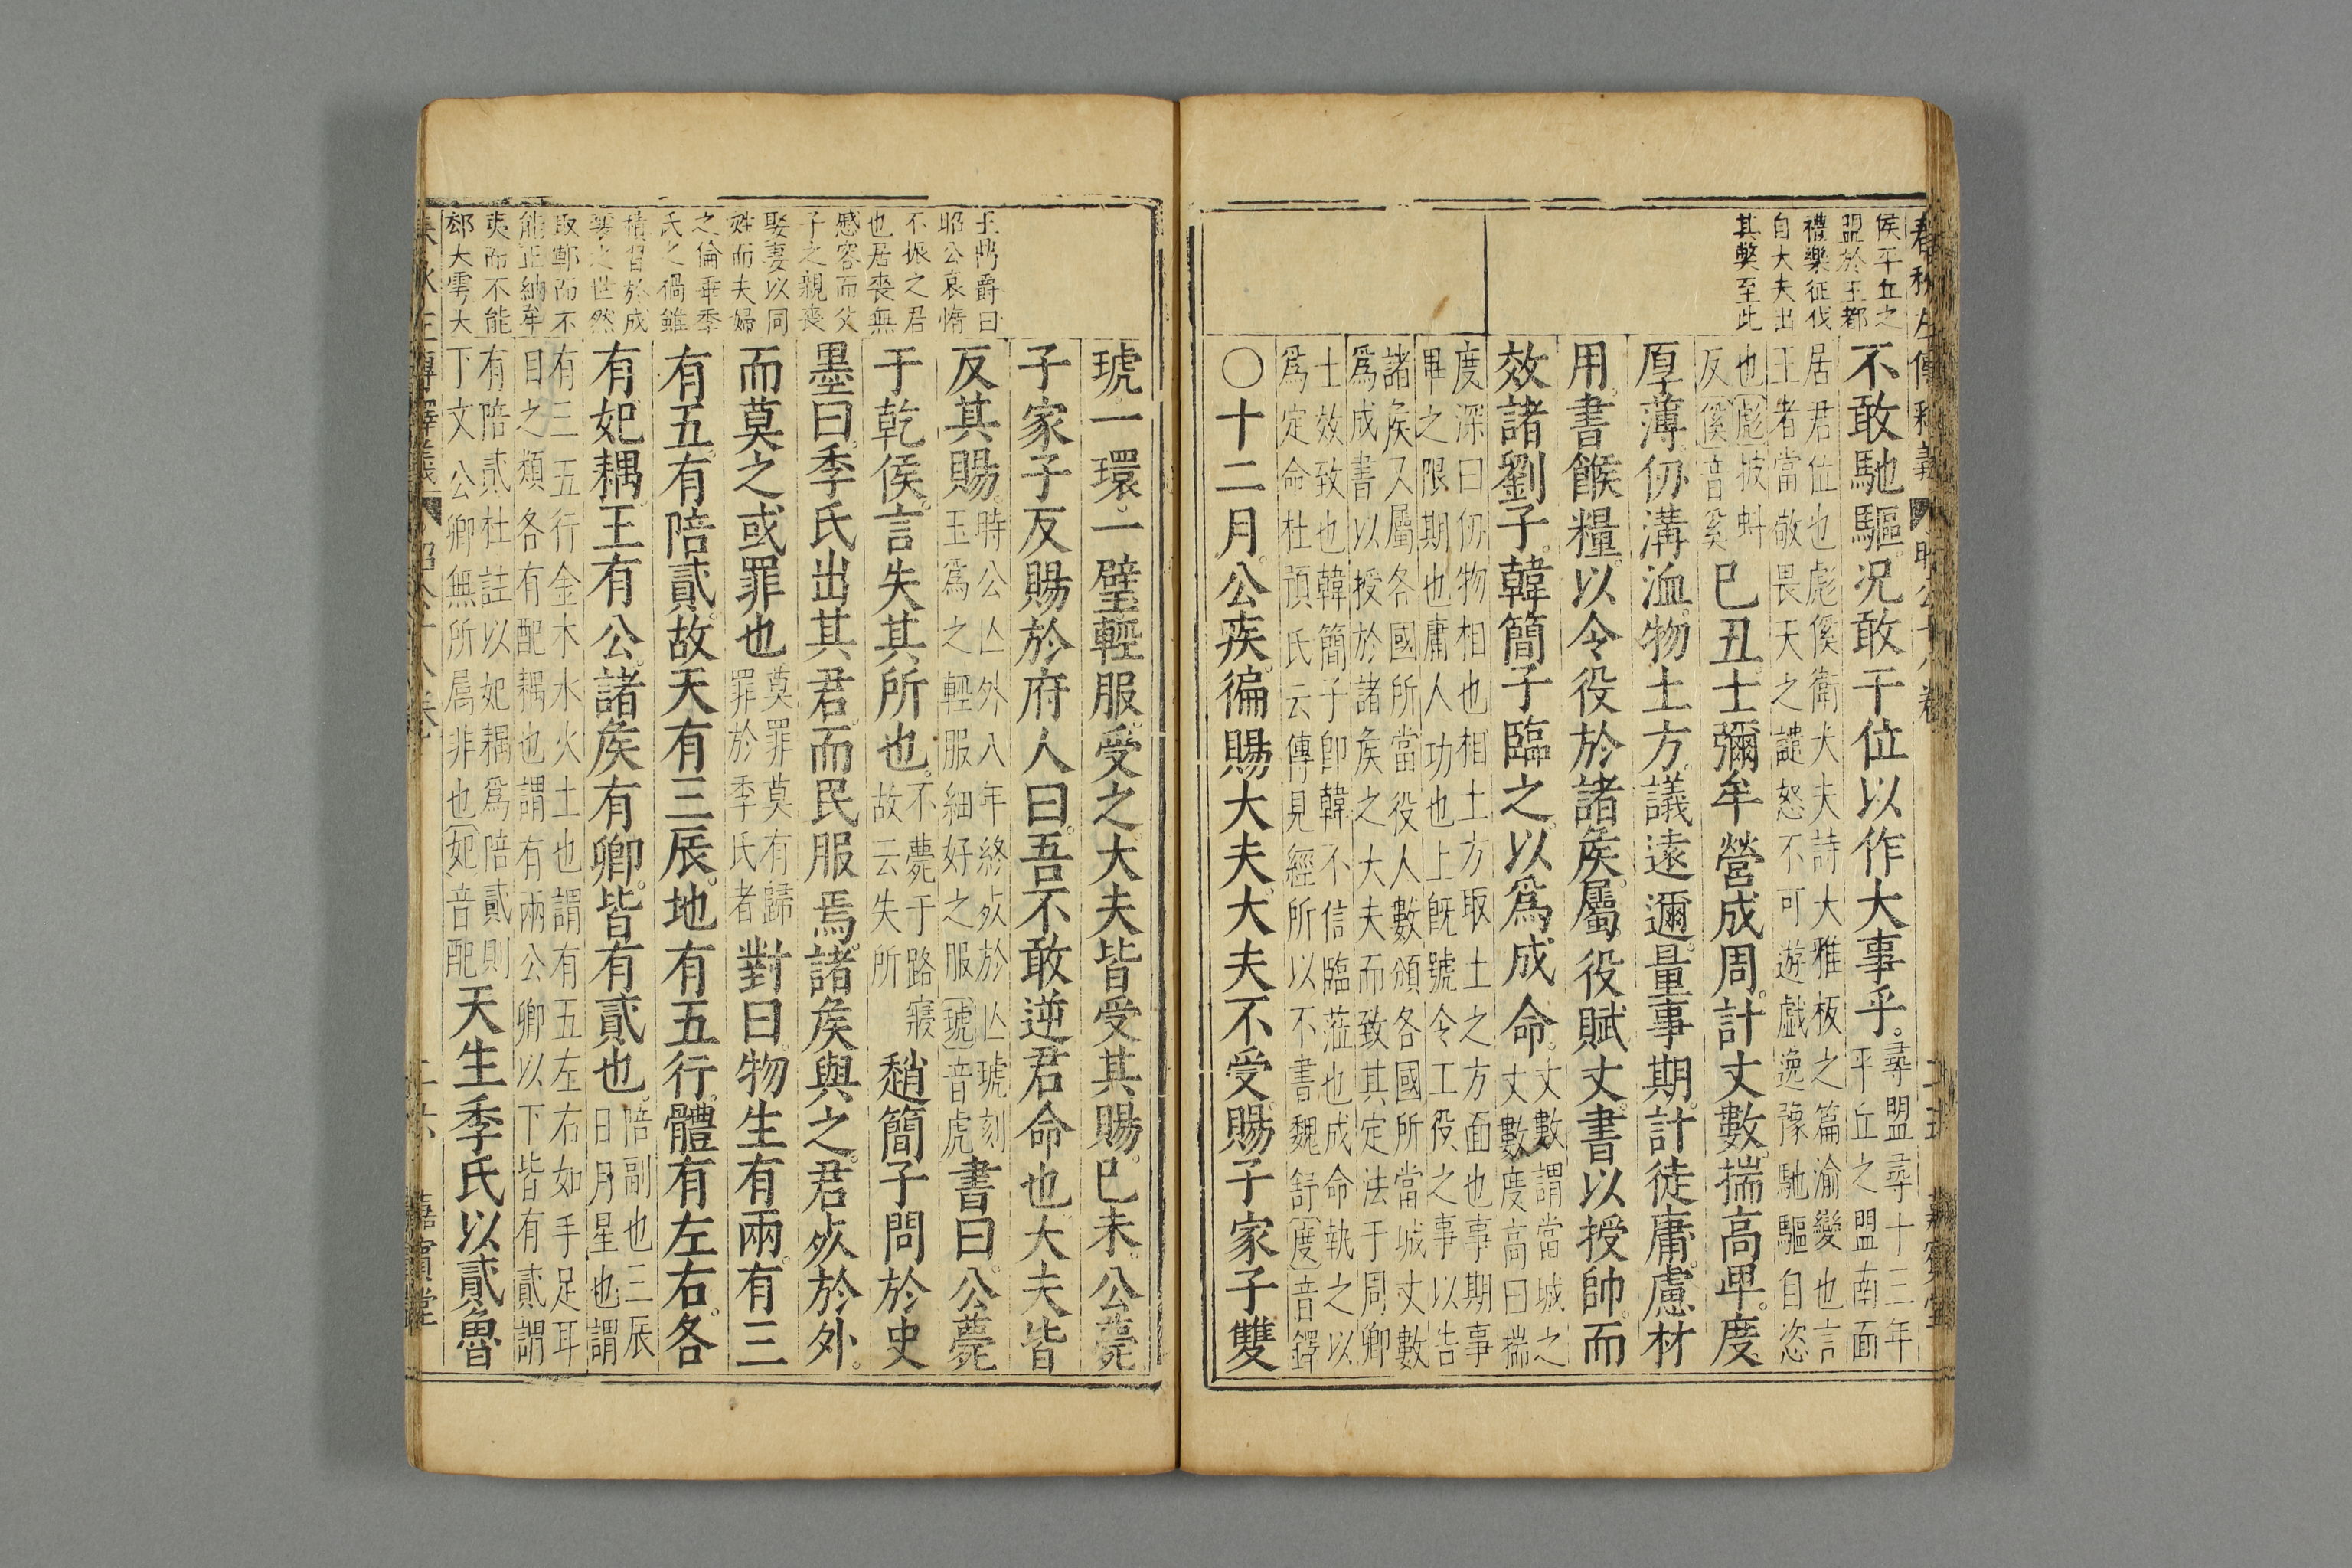 侯平丘之
盟於王都
禮樂征伐
自大夫出
其獘至此
不敢馳驅况敢干位以作大事乎
尋盟尋十三年
平丘之盟南面
居君位也彪傒衛大夫詩大雅板之篇渝變也言
王者當敬畏天之譴怒不可遊戲逸豫馳驅自恣
也彪披蚪
反傒音奚
巳丑士彌牟營成周計丈數揣高卑度
厚薄仞溝洫物土方議遠邇量事期計徒庸慮材
用書餱糧以令役於諸矦屬役賦丈書以授帥而
效諸劉子韓簡子臨之以爲成命
丈數謂當城之
丈數度高曰揣
度深曰仞物相也相土方取土之方面也事期事
畢之限期也庸人功也上旣號令工役之事以告
諸矦又屬各國所當役人數頒各國所當城丈數
爲成書以授於諸矦之大夫而致其定法于周卿
士效致也韓簡子卽韓不信臨蒞也成命執之以
爲定命杜預氏云傳見經所以不書魏舒度音鐸
〇十二月公疾徧賜大夫大夫不受賜子家子雙
王鼎爵曰
昭公哀惰
不振之君
也居喪無
慼容而父
子之親喪
娶妻以同
姓而夫婦
之倫乖季
氏之禍雖
積習於成
襄之世然
取鄆而不
能正納牟
夷而不能
郊大雩大
琥一環一璧輕服受之大夫皆受其賜巳未公薨
子家子反賜於府人曰吾不敢逆君命也大夫皆
反其賜
時公亾外八年終歿於亾琥刻
玉爲之輕服細好之服琥音虎
書曰公薨
于乾侯言失其所也
不薨于路寢
故云失所
趙簡子問於史
墨曰季氏出其君而民服焉諸矦與之君歿於外
而莫之或罪也
莫罪莫有歸
罪於季氏者
對曰物生有兩有三
有五有陪貳故天有三辰地有五行體有左右各
有妃耦王有公諸矦有卿皆有貳也
陪副也三辰
日月星也謂
有三五行金木水火土也謂有五左右如手足耳
目之類各有配耦也謂有兩公卿以下皆有貳謂
有陪貳杜註以妃耦爲陪貳則
下文公卿無所屬非也妃音配
天生季氏以貳魯